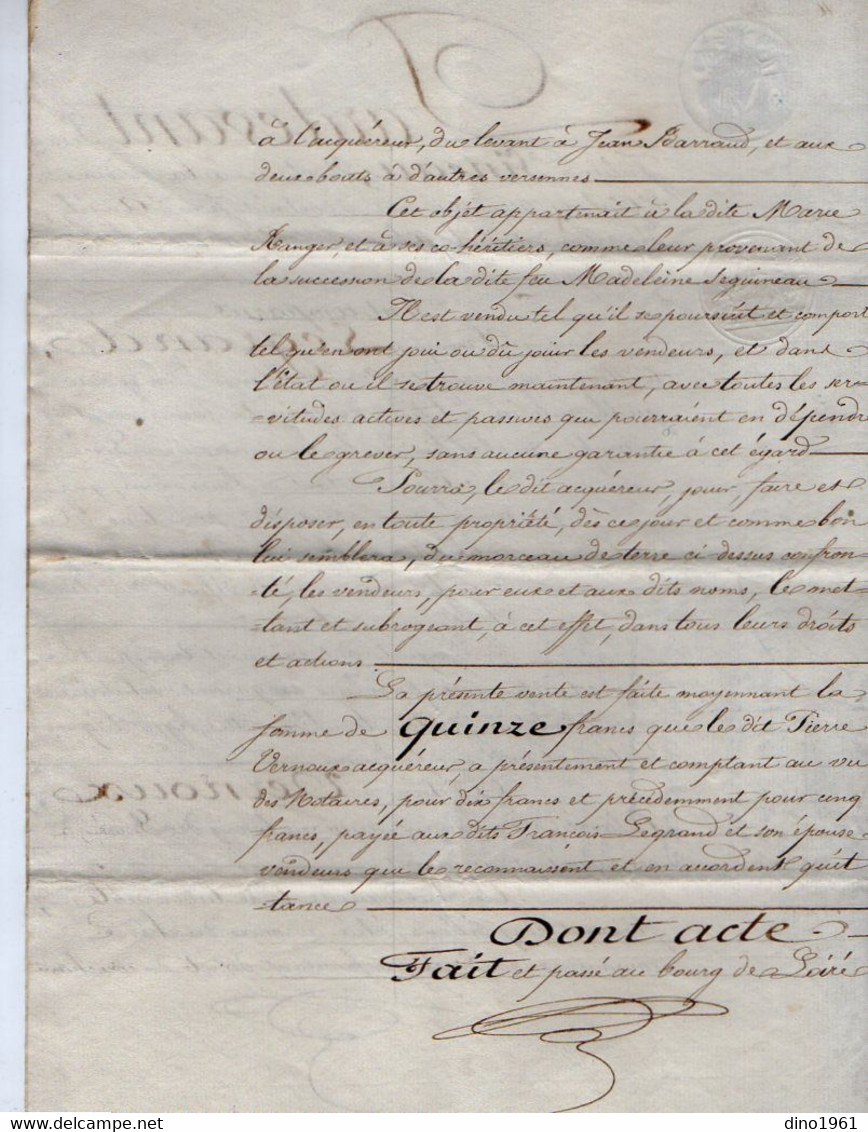 à l'acquéreur, du levant à Jean Barraud, et aux
deux bouts à d'autres versennes
Cet objet appartenait à la dite Marie
Ranger, et à ses co-héritiers, comme leur provenant de
la succession de la dite feu Madeleine Seguineau
Il est vendu tel qu'il se poursuit et comport
tel qu'en ont joui ou dû jouir les vendeurs, et dans
l'état ou il se trouve maintenant, avec toutes les ser-
-vitudes actives et passives qui pourraient en dépendr
ou le grever, sans aucune garantie à cet égard
Pourra, le dit acquéreur, jouir, faire et
disposer, en toute propriété, dès ce jour et comme bon
lui semblera, du morceau de terre ci dessus confron-
-té, les vendeurs, pour eux et aux dits noms, le met-
-tant et subrogeant, à cet effet, dans tous leurs droits
et actions.
La présente vente est faite moyennant la
somme de quinze francs que le dit Pierre
Vernoux acquéreur, a présentement et comptant au vu
des Notaires, pour dix francs et précédemment pour cinq
francs, payée aux dits François Legrand et son épouse
vendeurs qui le reconnaissent et en accordent quit
-tance
Dont acte
Fait et passé au bourg de Loiré
dino1961